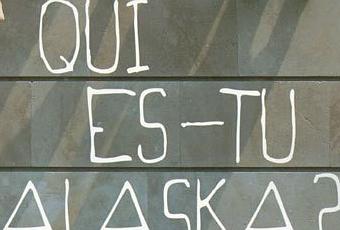 QUI
ES-TU
ALASKA?